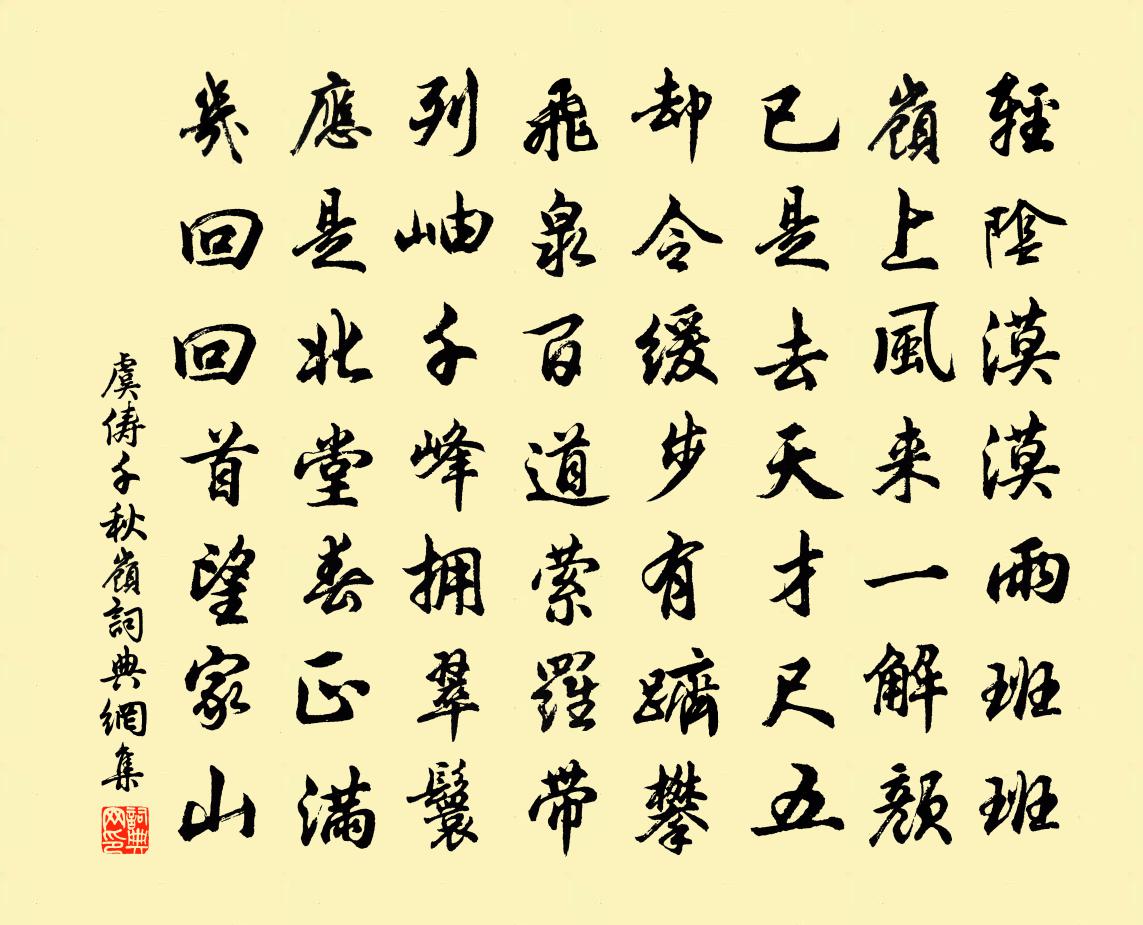 輕陰漠漠雨班班
嶺上風来一解顏
已是去天才尺五
却令緩步有躋攀
飛泉百道縈羅帶
列岫千峰拥翠鬟
應是北堂春正滿
幾回回首望家山
虞俦千秋嶺詞典網集
詞典网印